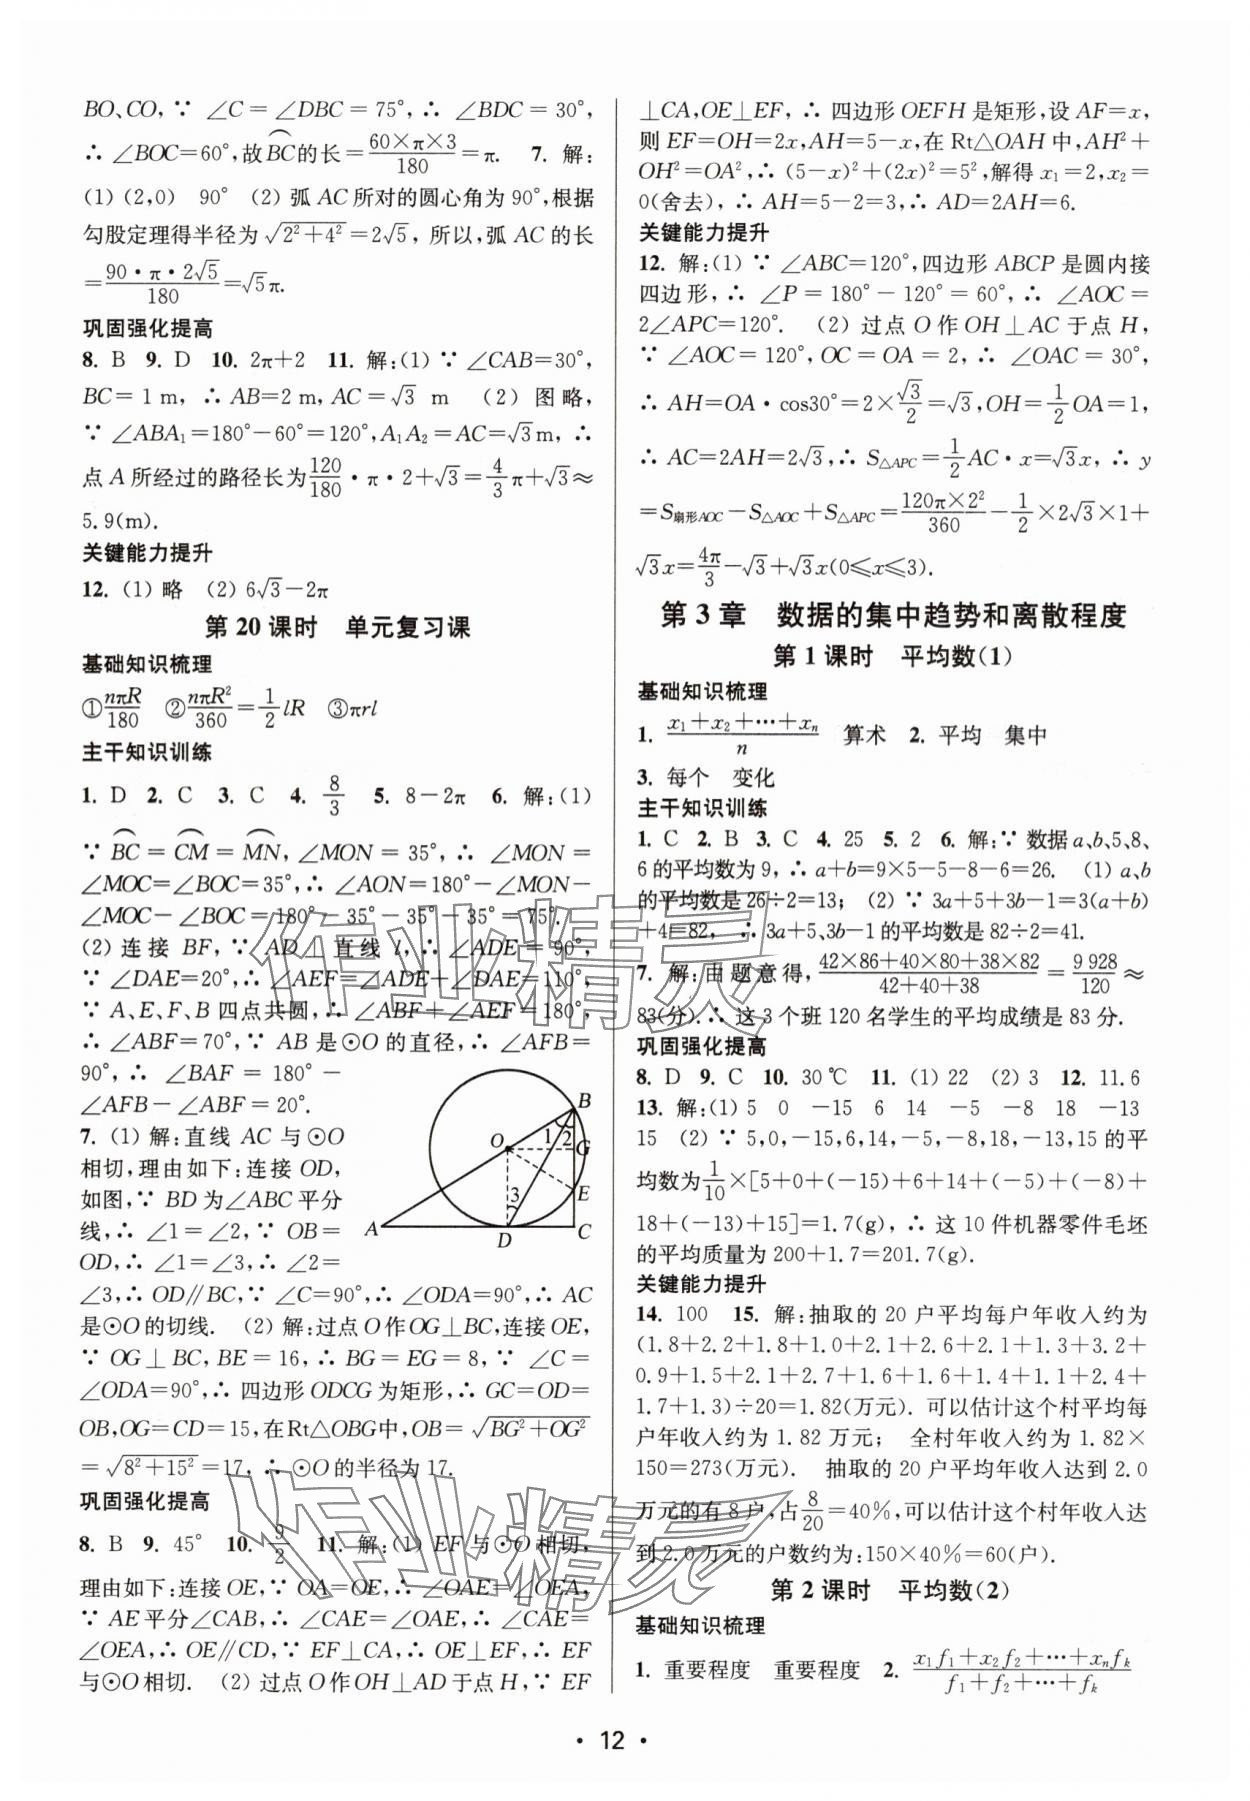 BO、CO,∵ ∠C=∠DBC=75°,∴ ∠BDC=30°,
∴ ∠BOC=60°,故BC⌒的长=60×π×3/180=π. 7. 解:
(1) (2,0) 90° (2) 弧AC所对的圆心角为90°,根据
勾股定理得半径为√(2²+4²)=2√5, 所以,弧AC的长
=90·π·2√5/180=√5π.
巩固强化提高
8. B 9. D 10. 2π+2 11. 解:(1) ∵ ∠CAB=30°,
BC=1 m, ∴ AB=2 m, AC=√3 m (2) 图略,
∵ ∠ABA₁=180°-60°=120°,A₁A₂=AC=√3 m, ∴
点A所经过的路径长为120/180·π·2+√3=4/3π+√3≈
5.9(m).
关键能力提升
12. (1) 略 (2) 6√3-2π
第20课时 单元复习课
基础知识梳理
①nπR/180 ②nπR²/360=1/2lR ③πrl
主干知识训练
1. D 2. C 3. C 4. 8/3 5. 8-2π 6. 解:(1)
∵ BC⌒=CM⌒=MN⌒,∠MON=35°,∴ ∠MON=
∠MOC=∠BOC=35°,∴ ∠AON=180°-∠MON-
∠MOC-∠BOC=180°-35°-35°-35°=75°.
(2) 连接BF,∵ AD⊥直线l,∴ ∠ADE=90°,
∵ ∠DAE=20°,∴ ∠AEF=∠ADE+∠DAE=110°,
∵ A、E、F、B四点共圆,∴ ∠ABF+∠AEF=180°,
∴ ∠ABF=70°,∵ AB是⊙O的直径,∴ ∠AFB=
90°,∴ ∠BAF=180°-
∠AFB-∠ABF=20°.
7. (1) 解:直线AC与⊙O
相切,理由如下:连接OD,
如图,∵ BD为∠ABC平分
线,∴ ∠1=∠2,∵ OB=
OD,∴ ∠1=∠3,∴ ∠2=
∠3,∴ OD∥BC,∵ ∠C=90°,∴ ∠ODA=90°,∴ AC
是⊙O的切线. (2) 解:过点O作OG⊥BC,连接OE,
∵ OG⊥BC,BE=16,∴ BG=EG=8,∵ ∠C=
∠ODA=90°,∴ 四边形ODCG为矩形,∴ GC=OD=
OB,OG=CD=15,在Rt△OBG中,OB=√(BG²+OG²)
=√(8²+15²)=17,∴ ⊙O的半径为17.
巩固强化提高
8. B 9. 45° 10. 9/2 11. 解:(1) EF与⊙O相切,
理由如下:连接OE,∵ OA=OE,∴ ∠OAE=∠OEA,
∵ AE平分∠CAB,∴ ∠CAE=∠OAE,∴ ∠CAE=
∠OEA,∴ OE∥CD,∵ EF⊥CA,∴ OE⊥EF,∴ EF
与⊙O相切. (2) 过点O作OH⊥AD于点H,∵ EF
B
1
2
O
G
3
E
A
D
C
⊥CA,OE⊥EF,∴ 四边形OEFH是矩形,设AF=x,
则EF=OH=2x,AH=5-x,在Rt△OAH中,AH²+
OH²=OA²,∴ (5-x)²+(2x)²=5²,解得x₁=2,x₂=
0(舍去),∴ AH=5-2=3,∴ AD=2AH=6.
关键能力提升
12. 解:(1) ∵ ∠ABC=120°,四边形ABCP是圆内接
四边形,∴ ∠P=180°-120°=60°,∴ ∠AOC=
2∠APC=120°. (2) 过点O作OH⊥AC于点H,
∵ ∠AOC=120°,OC=OA=2,∴ ∠OAC=30°,
∴ AH=OA·cos30°=2×√3/2=√3,OH=1/2OA=1,
∴ AC=2AH=2√3,∴ S△APC=1/2AC·x=√3x,∴ y
=S扇形AOC-S△AOC+S△APC=120π×2²/360-1/2×2√3×1+
√3x=4π/3-√3+√3x(0≤x≤3).
第3章 数据的集中趋势和离散程度
第1课时 平均数(1)
基础知识梳理
1. (x₁+x₂+…+xₙ)/n 算术 2. 平均 集中
3. 每个 变化
主干知识训练
1. C 2. B 3. C 4. 25 5. 2 6. 解:∵ 数据a、b、5、8、
6的平均数为9,∴ a+b=9×5-5-8-6=26. (1) a、b
的平均数是26÷2=13; (2) ∵ 3a+5+3b-1=3(a+b)
+4=82, ∴ 3a+5、3b-1的平均数是82÷2=41.
7. 解:由题意得,(42×86+40×80+38×82)/(42+40+38)=9 928/120≈
83(分).∴ 这3个班120名学生的平均成绩是83分.
巩固强化提高
8. D 9. C 10. 30℃ 11. (1) 22 (2) 3 12. 11.6
13. 解:(1) 5 0 -15 6 14 -5 -8 18 -13
15 (2) ∵ 5,0,-15,6,14,-5,-8,18,-13,15的平
均数为1/10×[5+0+(-15)+6+14+(-5)+(-8)+
18+(-13)+15]=1.7(g),∴ 这10件机器零件毛坯
的平均质量为200+1.7=201.7(g).
关键能力提升
14. 100 15. 解:抽取的20户平均每户年收入约为
(1.8+2.2+1.8+1.0+2.1+2.6+2.1+1.3+3.2+
0.9+1.5+2.1+2.7+1.6+1.4+1.1+2.4+
1.7+1.3)÷20=1.82(万元). 可以估计这个村平均每
户年收入约为1.82万元; 全村年收入约为1.82×
150=273(万元). 抽取的20户平均年收入达到2.0
万元的有8户,占8/20=40%,可以估计这个村年收入达
到2.0万元的户数约为:150×40%=60(户).
第2课时 平均数(2)
基础知识梳理
1. 重要程度 重要程度 2. (x₁f₁+x₂f₂+…+xₙfₖ)/(f₁+f₂+…+fₖ)
· 12 ·
作业精灵
作业精灵